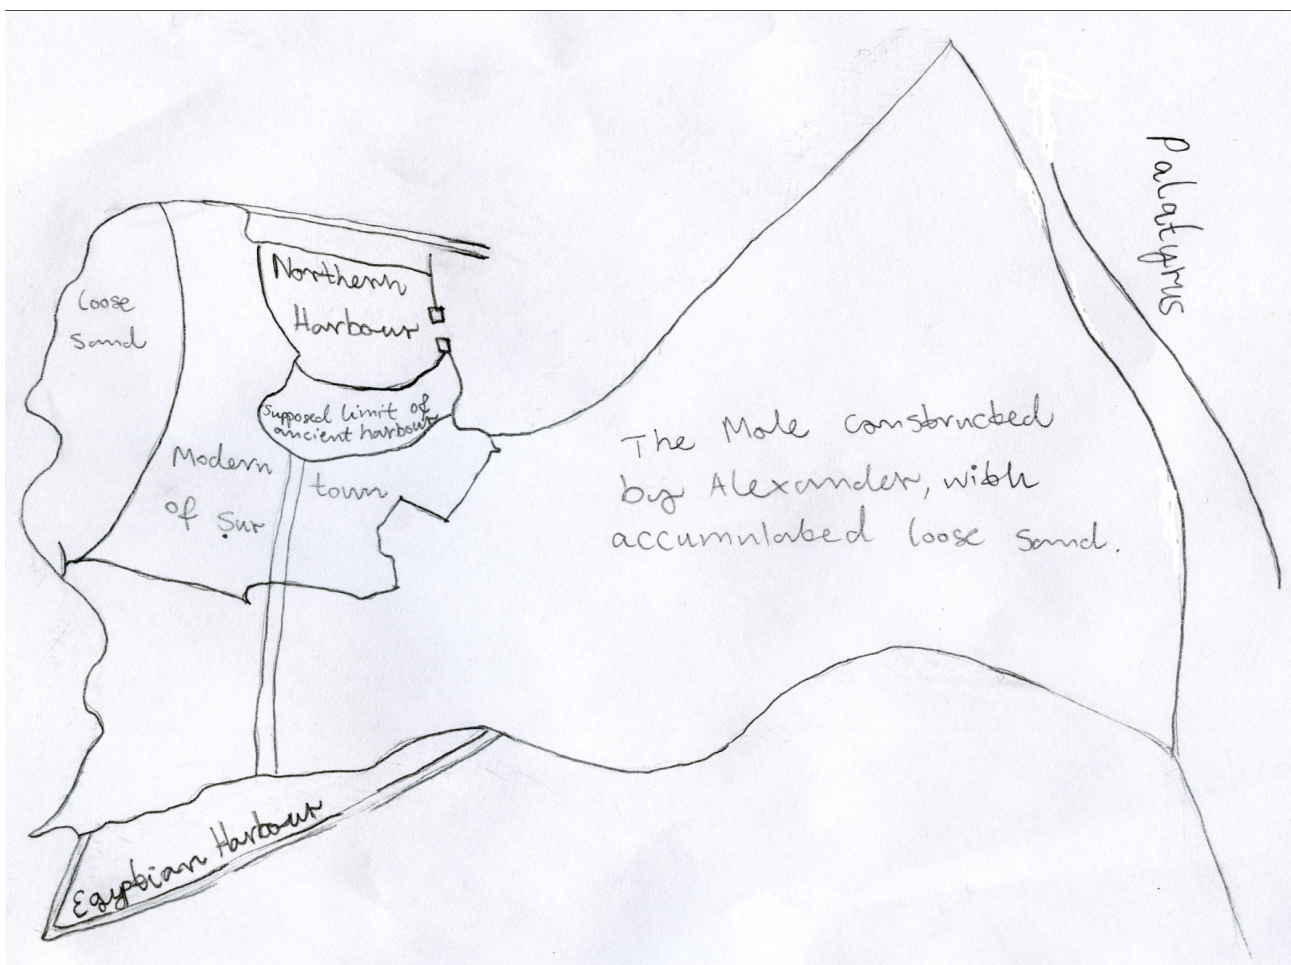 Palatyrus
Northern
Harbour
loose
sand
Supposed limit of
ancient harbour
Modern town
of Ṣur
The Mole constructed
by Alexander, with
accumulated loose sand.
Egyptian Harbour